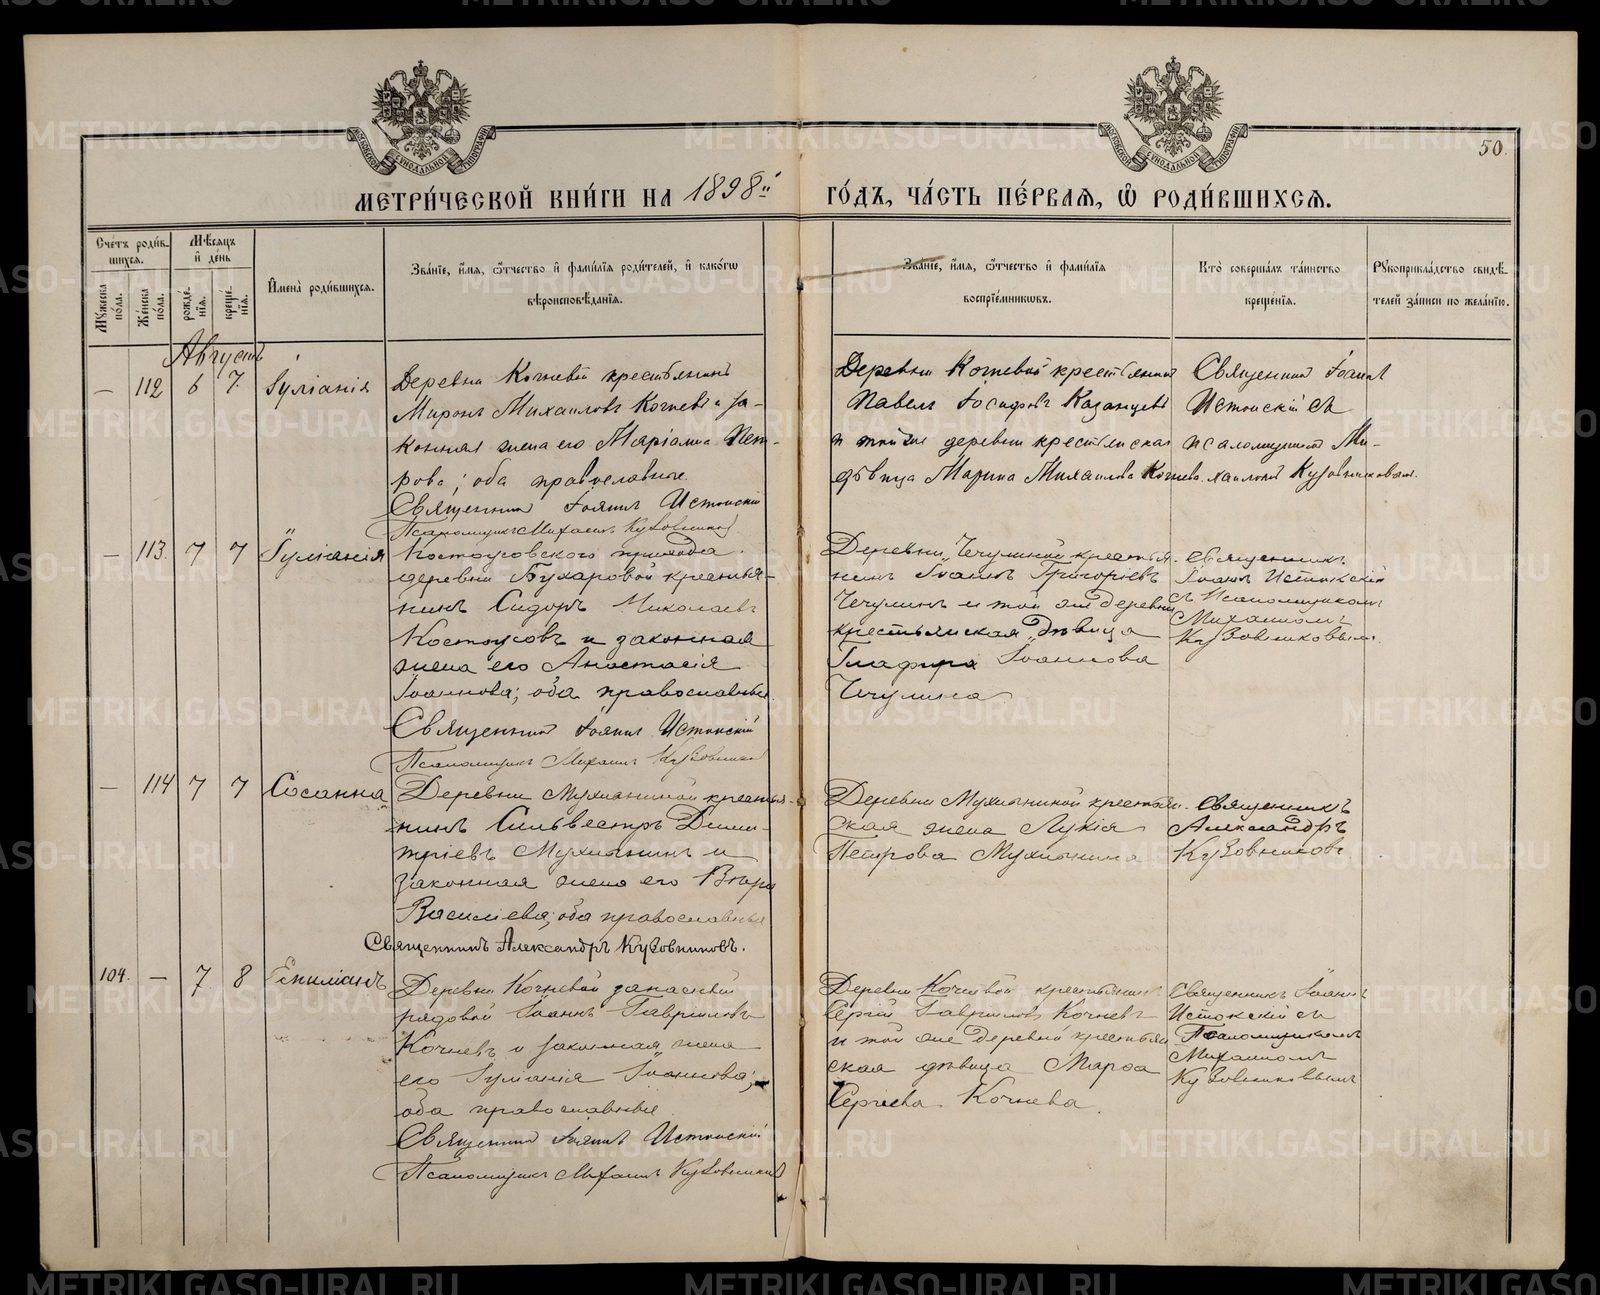 50.
МЕТРИ́ЧЕСКОЙ КНИ́ГИ НА 1898й ГО́ДЪ, ЧА́СТЬ ПЕ́РВАЯ, Ѽ РОДИ́ВШИХСЯ.
Счётъ роди́вшихся.
Мѣ́сяцъ и҆ де́нь
Мꙋ́жеска по́ла.
Же́нска по́ла.
рожде́нїѧ.
креще́нїѧ.
И҆мена̀ роди́вшихсѧ.
Зва́нїе, и҆́мѧ, ѻ҆́тчество и҆ фами́лїѧ роди́телей, и҆ како́гѡ
вѣроисповѣ́данїѧ.
Зва́нїе, и҆́мѧ, ѻ҆́тчество и҆ фами́лїѧ
воспрїе́мникѡвъ.
Кто̀ соверша́лъ та́инство
креще́нїѧ.
Рꙋкоприкла́дство свидѣ́телей за́писи по жела́нїю.
Августъ
— 112 6 7 Іуліанія
Деревни Кочневой крестьянинъ
Миронъ Михаиловъ Кочневъ и за-
конная жена его Маріамна Пет-
рова; оба православные.
Священникъ Іоаннъ Истокскій
Псаломщикъ Михаилъ Кузовниковъ
Деревни Кочневой крестьянинъ
Павелъ Іосифовъ Казанцевъ
и той же деревни крестьянская
дѣвица Марина Михаилова Кочнева.
Священникъ Іоаннъ
Истокскій съ
псаломщикомъ Ми-
хаиломъ Кузовниковымъ.
— 113. 7 7 Іуліанія
Костоусовскаго прихода
деревни Бухаровой крестья-
нинъ Сидоръ Николаевъ
Костоусовъ и законная
жена его Анастасія
Іоаннова; оба православные.
Священникъ Іоаннъ Истокскій
Псаломщикъ Михаилъ Кузовниковъ
Деревни Чечулиной крестья-
нинъ Іоаннъ Григоріевъ
Чечулинъ и той же деревни
крестьянская дѣвица
Глафира Іоаннова
Чечулина
Священникъ
Іоаннъ Истокскій
съ Псаломщикомъ
Михаиломъ
Кузовниковымъ.
— 114 7 7 Сосанна
Деревни Мухлыниной крестья-
нинъ Сильвестръ Дими-
тріевъ Мухлынинъ и
законная жена его Вѣра
Василіева; оба православные
Священникъ Александръ Кузовниковъ.
Деревни Мухлыниной крестьян-
ская жена Лукія
Петрова Мухлынина
Священникъ
Александръ
Кузовниковъ
104. — 7. 8
Деревни Кочневой запасный
рядовой Іоаннъ Гавриловъ
Кочневъ и законная жена
его Іуліанія Іоаннова;
оба православные.
Священникъ Іоаннъ Истокскій
Псаломщикъ Михаилъ Кузовниковъ
Деревни Кочневой крестьянинъ
Сергій Гавриловъ Кочневъ
и той же деревни крестьян-
ская дѣвица Марѳа
Сергіева Кочнева.
Священникъ Іоаннъ
Истокскій съ
Псаломщикомъ
Михаиломъ
Кузовниковымъ
METRIKI.GASO-URAL.RU